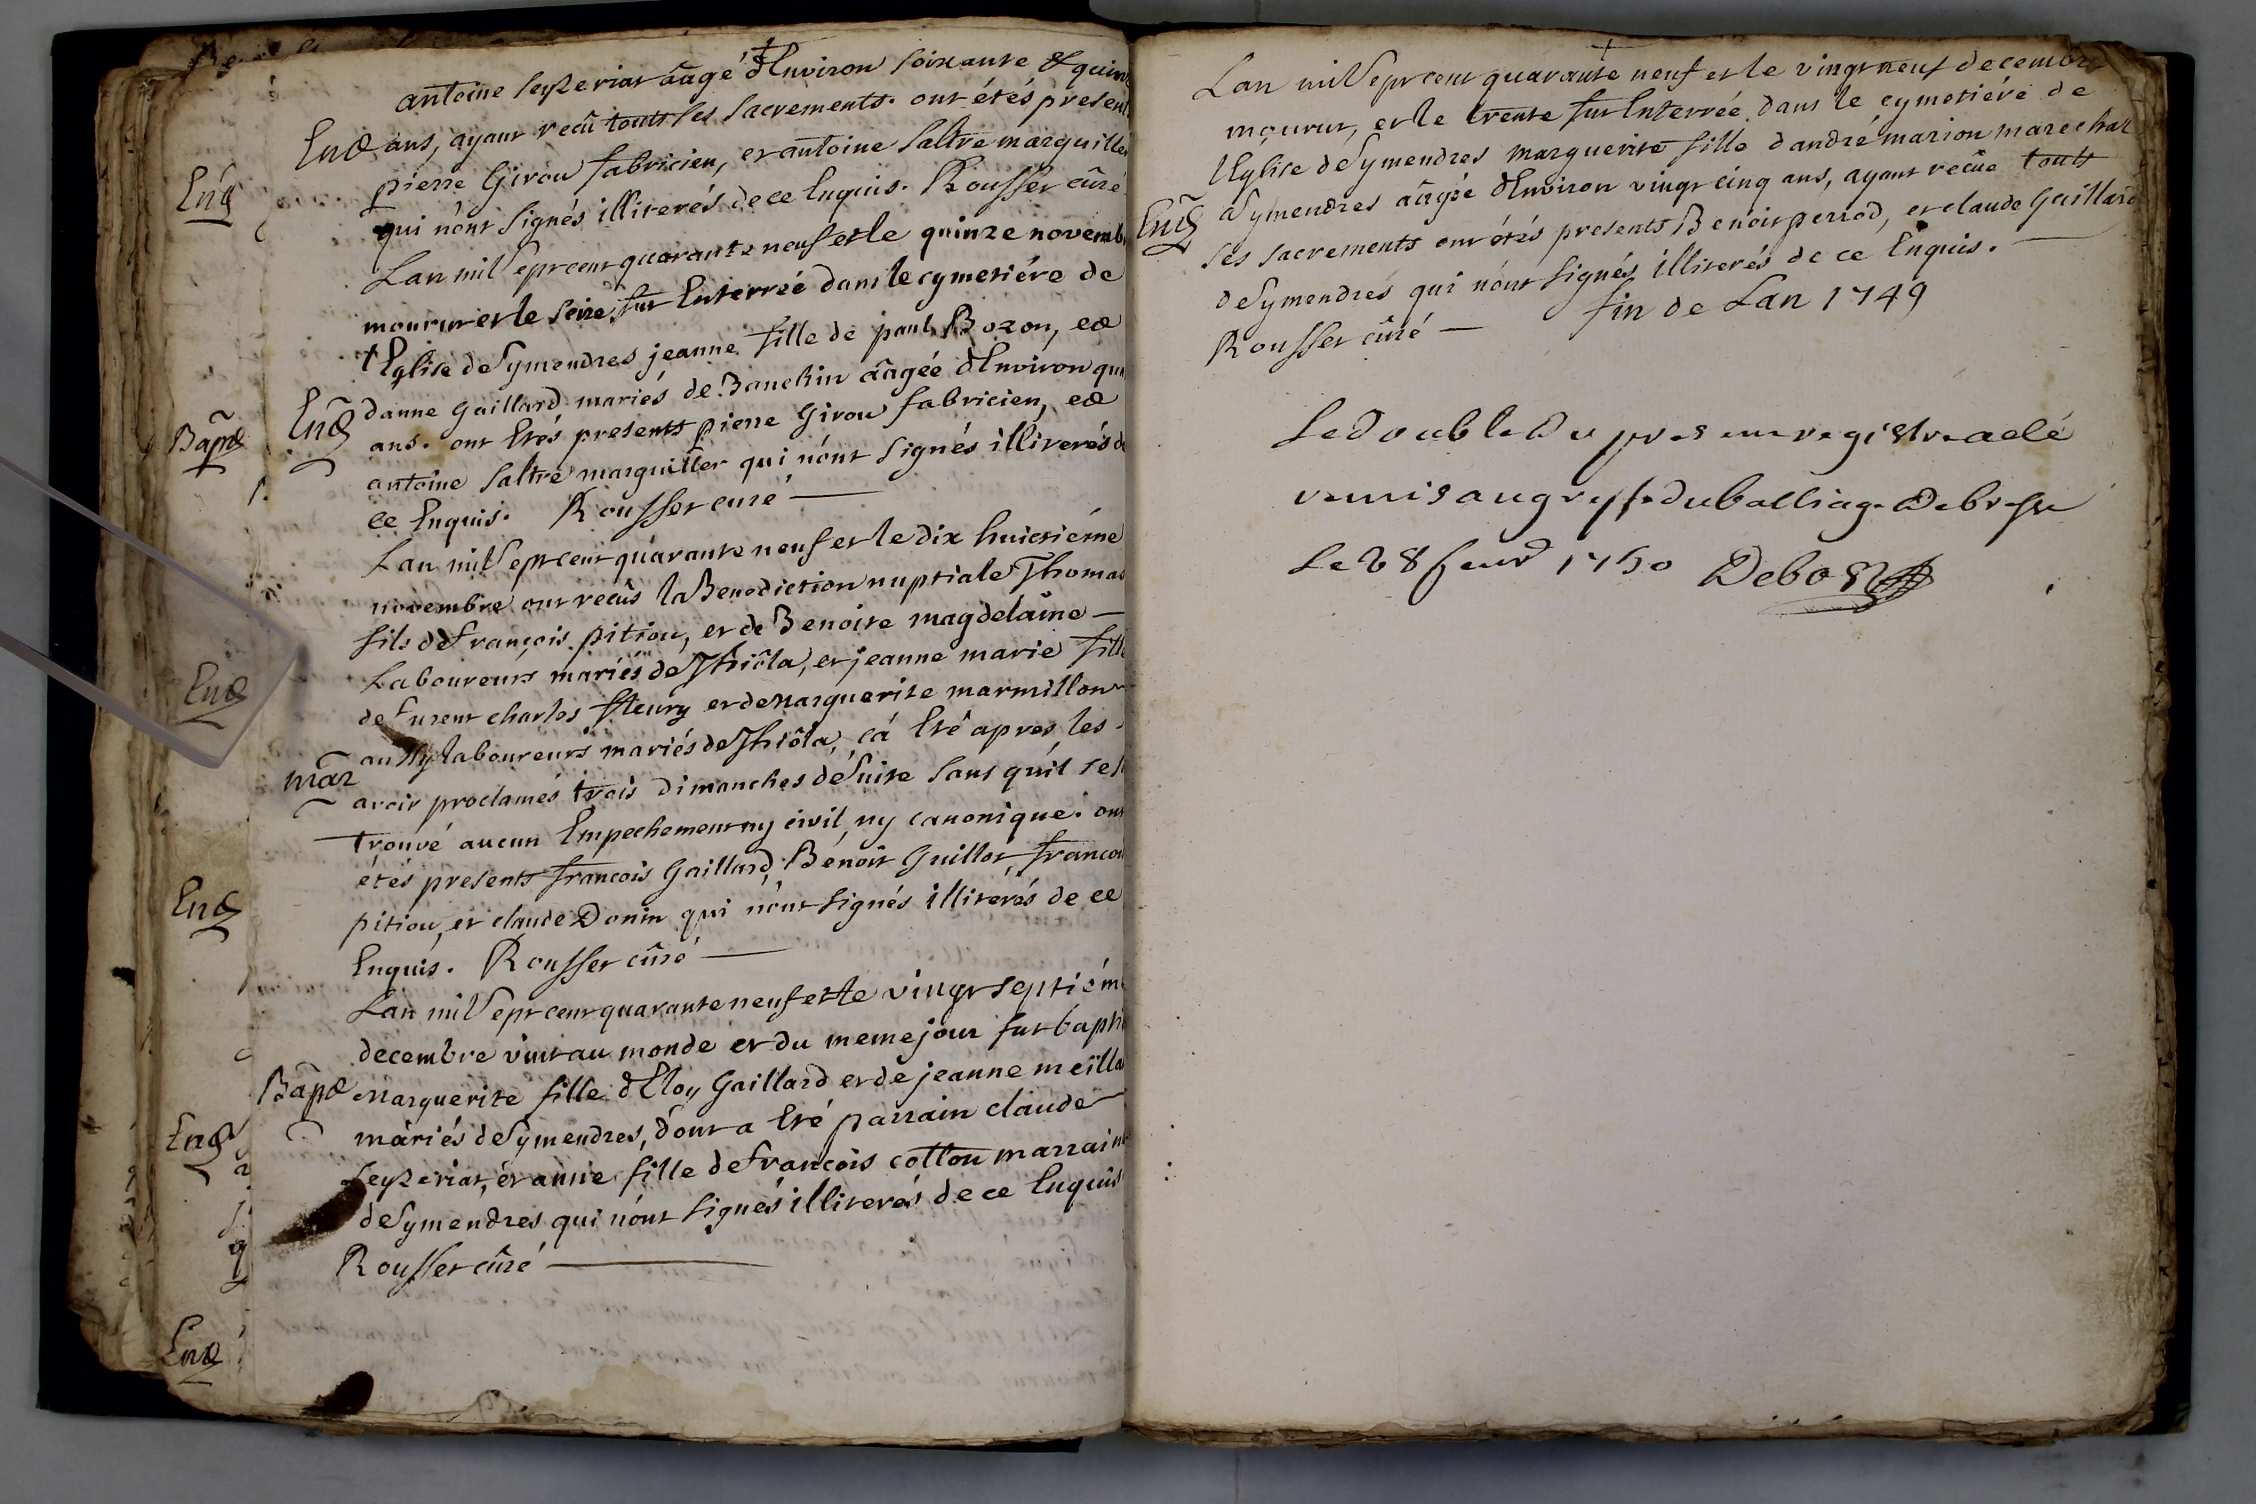 antoine seyzeriat aâgé d'Environ soixante & quin
End ans, ayant recû touts ses sacrements. ont étés present
pierre Girou fabricien, et antoine saltre marguiller
qui n'ont signés illiterés de ce Enquis. Rousset cûré
Lan mil sept cent quarante neuf et le quinze novemb
mourut et le seize fut Enterreé dans le cymetiére de
l'Eglise de symendres jeanne fille de paul Bozon, et
danne Gaillard mariés de Banchin aâgeé d'Environ
End ans. ont Etés presents pierre Girou fabricien, et
antoine saltre marguiller qui n'ont signés illiterés de
ce Enquis. Rousset curé
Lan mil sept cent quarante neuf et le dix huictiéme
novembre ont recûs la Benediction nuptiale Thomas
fils de françois pitiou, et de Benoite magdelaine
Laboureurs mariés de Thiôla, et jeanne marie fille
de furent charles fleury et de marguerite marmillon
aussy laboureurs mariés de Thiôla, cá Eté apres les
mar avoir proclamés trois dimanches de suite sans qu'il se
trouvé aucun Empechement ny civil, ny canonique. ont
étés presents françois Gaillard, Bénoit Guillot, françois
pitiou, et claude Donin qui n'ont signés illiterés de ce
Enquis. Rousset cûré
Lan mil sept cent quarante neuf et le vingt septiém
decembre vint au monde et du meme jour fut bapti
Bapt marguerite fille d'Eloy Gaillard et de jeanne meilla
mariés de symendres, dont a Eté parrain claude
seyzeriat, et anne fille de françois cotton marraine
de symendres qui n'ont signés illiterés de ce Enquis
Rousset cûré
End
Bapt
End
End
End
End
Lan mil sept cent quarante neuf et le vingt neuf decembre
mourut, et le trente fut Enterrée dans le cymetiére de
l'Eglise de symendres marguerite fille d'andré marion marechal
a symendres aâgée d'Environ vingt cinq ans, ayant recûe touts
End ses sacrements ont étés presents Benoit perrod, et claude Gaillard
de symendres qui n'ont signés illiterés de ce Enquis.
Rousset cûré fin de Lan 1749
Le double du present registre a eté
remis au greffe du balliage de bresse
Le 28 feuv 1750 Debost